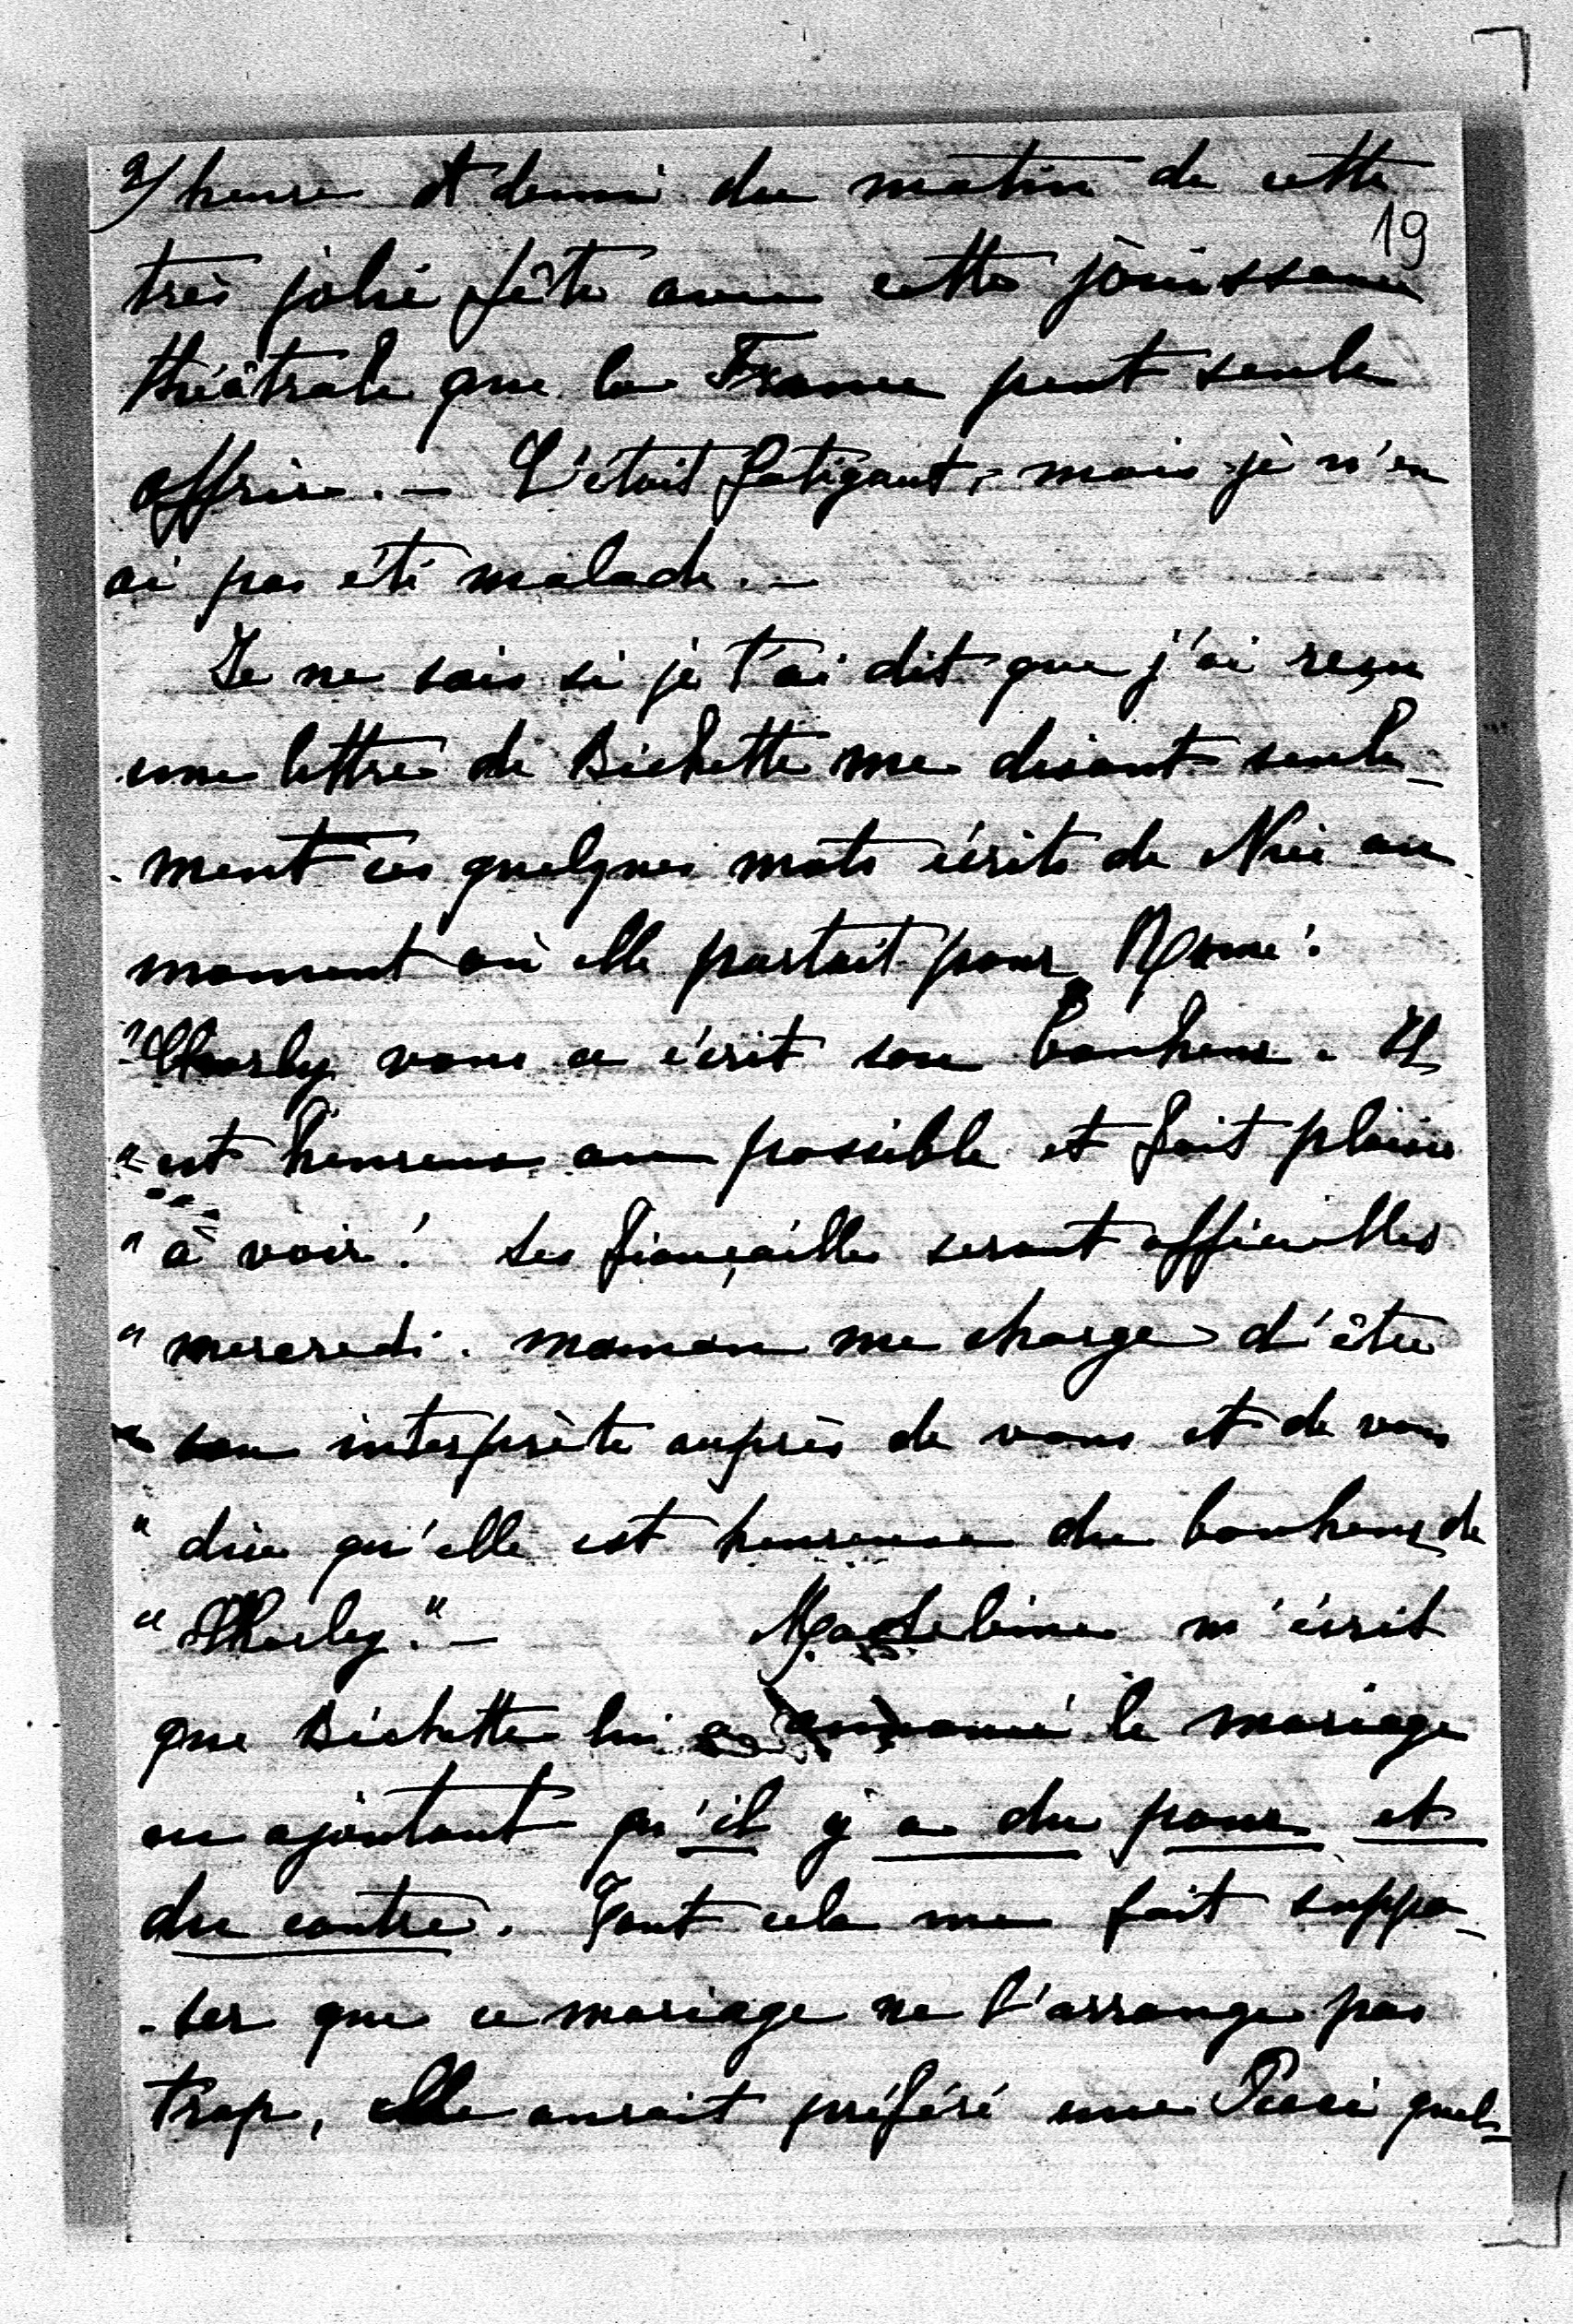 2/ heure et demi du matin de cette
19
très jolie fête avec cette jouissance
théâtrale que la France peut seule
offrir. — C'était fatigant, mais je n'en
ai pas été malade. —
Je ne sais si je t'ai dit que j'ai reçu
une lettre de Bichette me disant seule-
-ment ces quelques mots écrits de Nice au
moment où elle partait pour Rome :
"Charly vous a écrit son bonheur. Il
" est heureux au possible et fait plaisir
" à voir ! Les fiançailles seront officielles
" mercredi. maman me charge d'être
" son interprète auprès de vous et de vous
" dire qu'elle est heureuse du bonheur de
" Charly." — Madeleine m'écrit
que Bichette lui a annoncé le mariage
en ajoutant qu'il y a du pour et
du contre. Tout cela me fait suppo-
-ser que ce mariage ne l'arrange pas
trop, elle aurait préféré une quel-